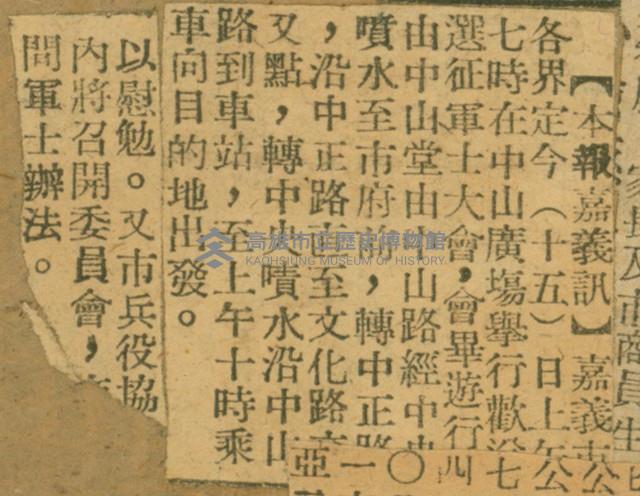 【本報嘉義訊】嘉義市
各界定今（十五）日上午
七時在中山廣場舉行歡送
選征軍士大會，會畢遊行
由中山堂由中山路經中央
噴水至市府，轉中正路
，沿中正路直至文化路
又點，轉中山噴水沿中山
路到車站，至上午十時乘
車向目的地出發。
以慰勉。又市兵役協
內將召開委員會，
問軍士辦法。
及市商員生
公
公
七
四
〇
一
亞
高雄市立歷史博物館
KAOHSIUNG MUSEUM OF HISTORY